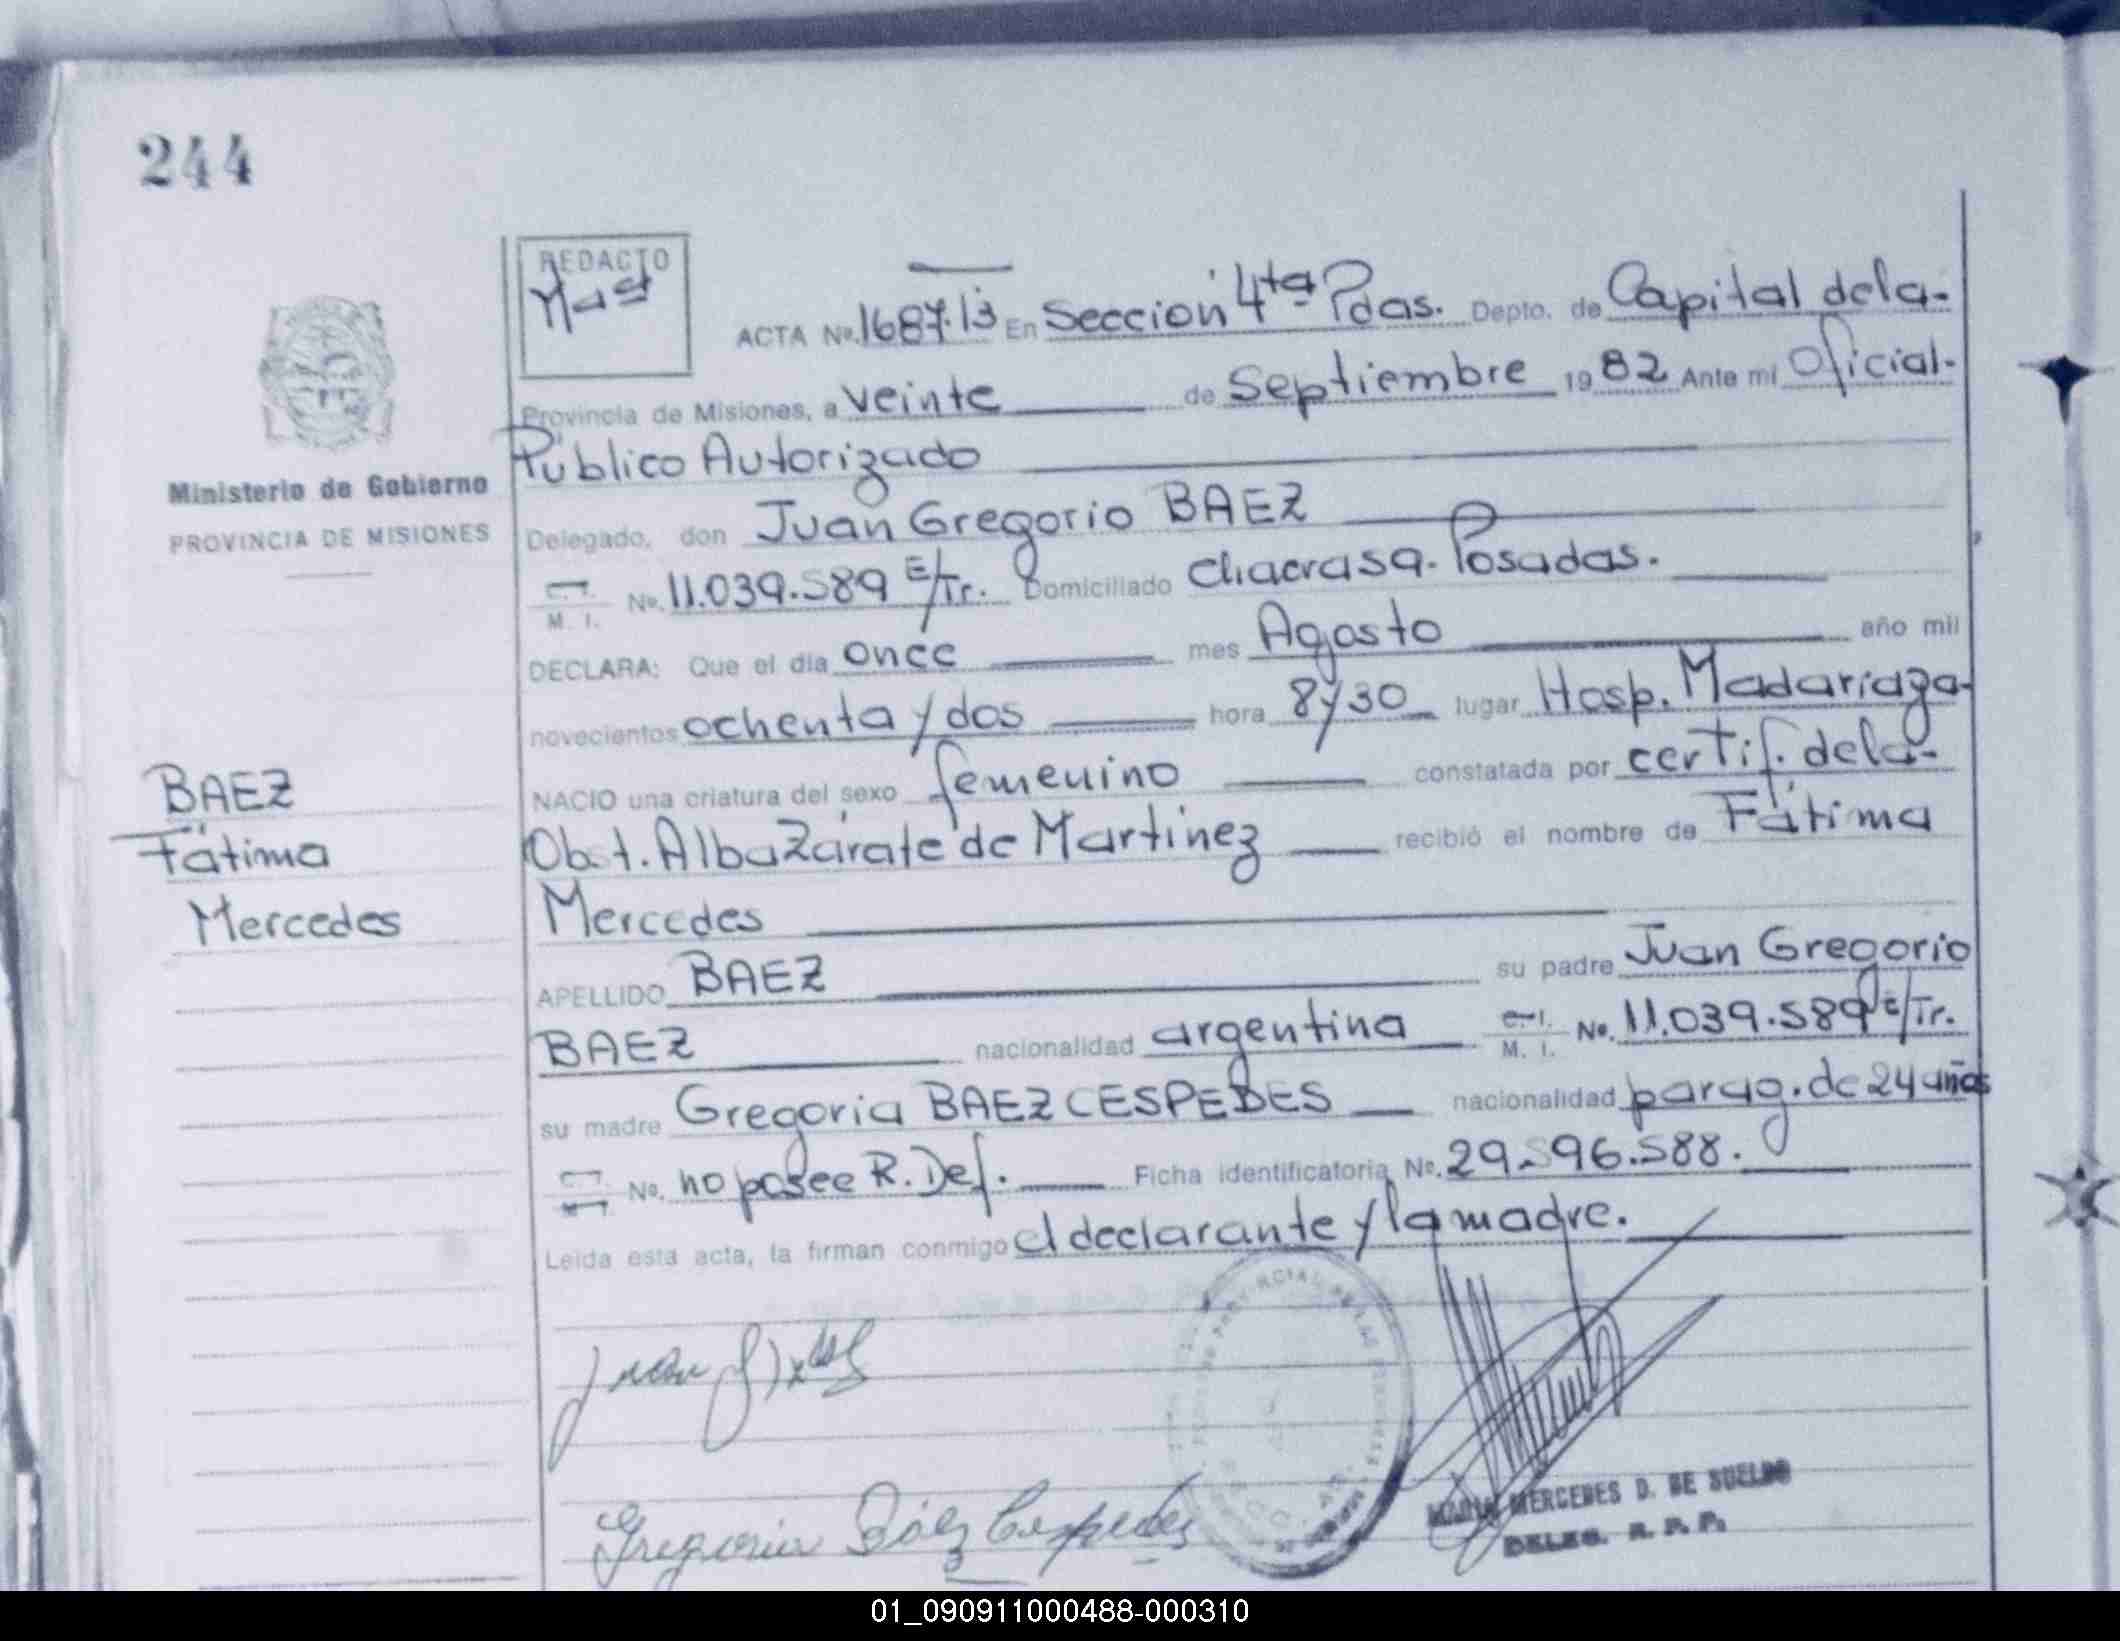 244
REDACTO
ACTA No. 1687.13 En Sección 4ta Pdas. Depto. de Capital dela-
Provincia de Misiones, a veinte de Septiembre 19 82 Ante mi Oficial-
Público Autorizado
Ministerio de Gobierno
PROVINCIA DE MISIONES
Delegado, don Juan Gregorio BAEZ
M. I. No. 11.039.589 E/Tr. Domiciliado Chacra 59. Posadas.
DECLARA: Que el día once mes Agosto año mil
novecientos ochenta y dos hora 8y30 lugar Hosp. Madariaga-
NACIO una criatura del sexo femenino constatada por certif. dela-
Obst. Alba Zárate de Martínez recibió el nombre de Fátima
Mercedes
BAEZ
Fátima
Mercedes
APELLIDO BAEZ su padre Juan Gregorio
BAEZ nacionalidad argentina C. I. M. I. No. 11.039.589 E/Tr.
su madre Gregoria BAEZ CESPEDES nacionalidad parag. de 24 años
No. no posee R. Def. Ficha identificatoria No. 29.596.588.
Leída esta acta, la firman conmigo el declarante y la madre.
Juan
Gregoria Báez Cespedes
MARIA MERCEDES D. DE SUELDO
DELEG. R. P. P.
01_090911000488-000310